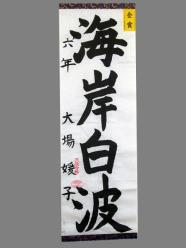 金賞
海岸白波
六年 大場媛子